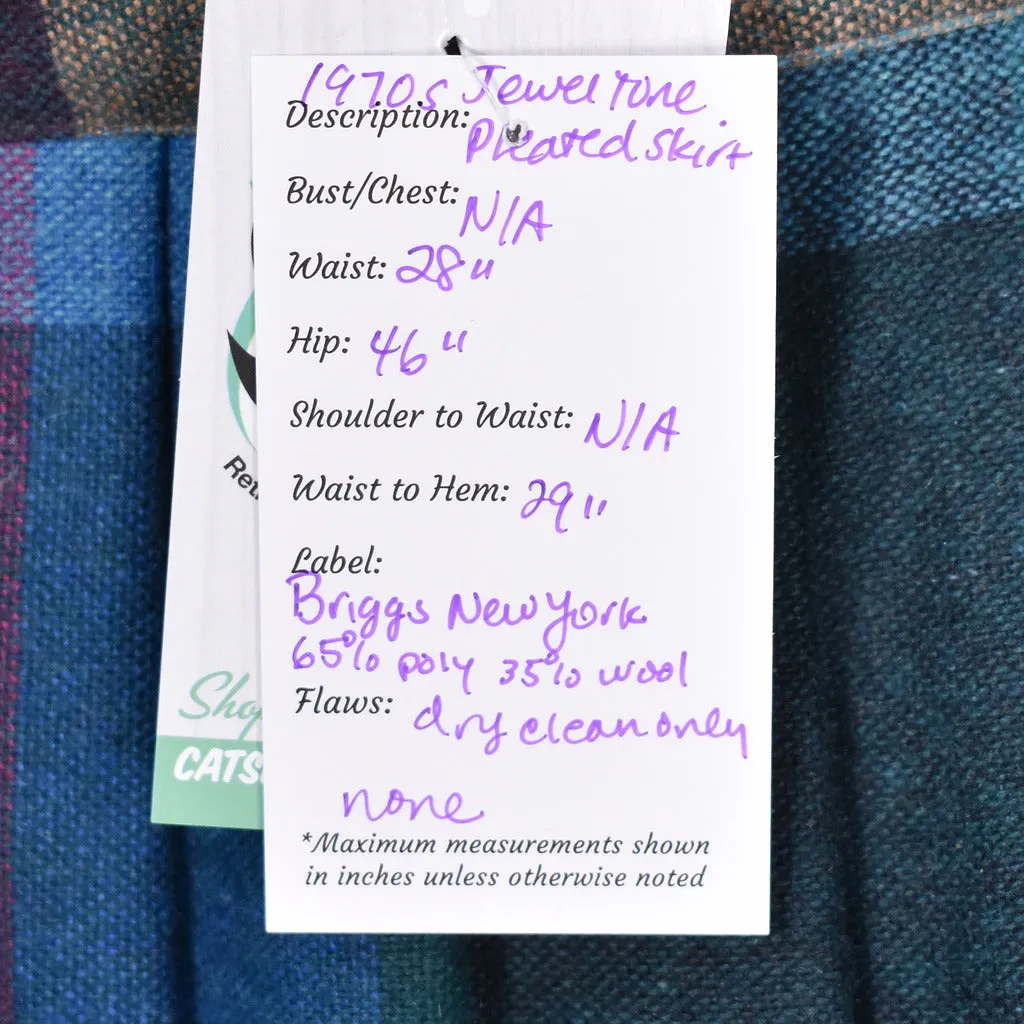 1970s Jewel tone
Description: Pleated skirt
Bust/Chest: N/A
Waist: 28"
Hip: 46"
Shoulder to Waist: N/A
Waist to Hem: 29"
Label:
Briggs New York
65% poly 35% wool
Flaws: dry clean only
none
*Maximum measurements shown
in inches unless otherwise noted